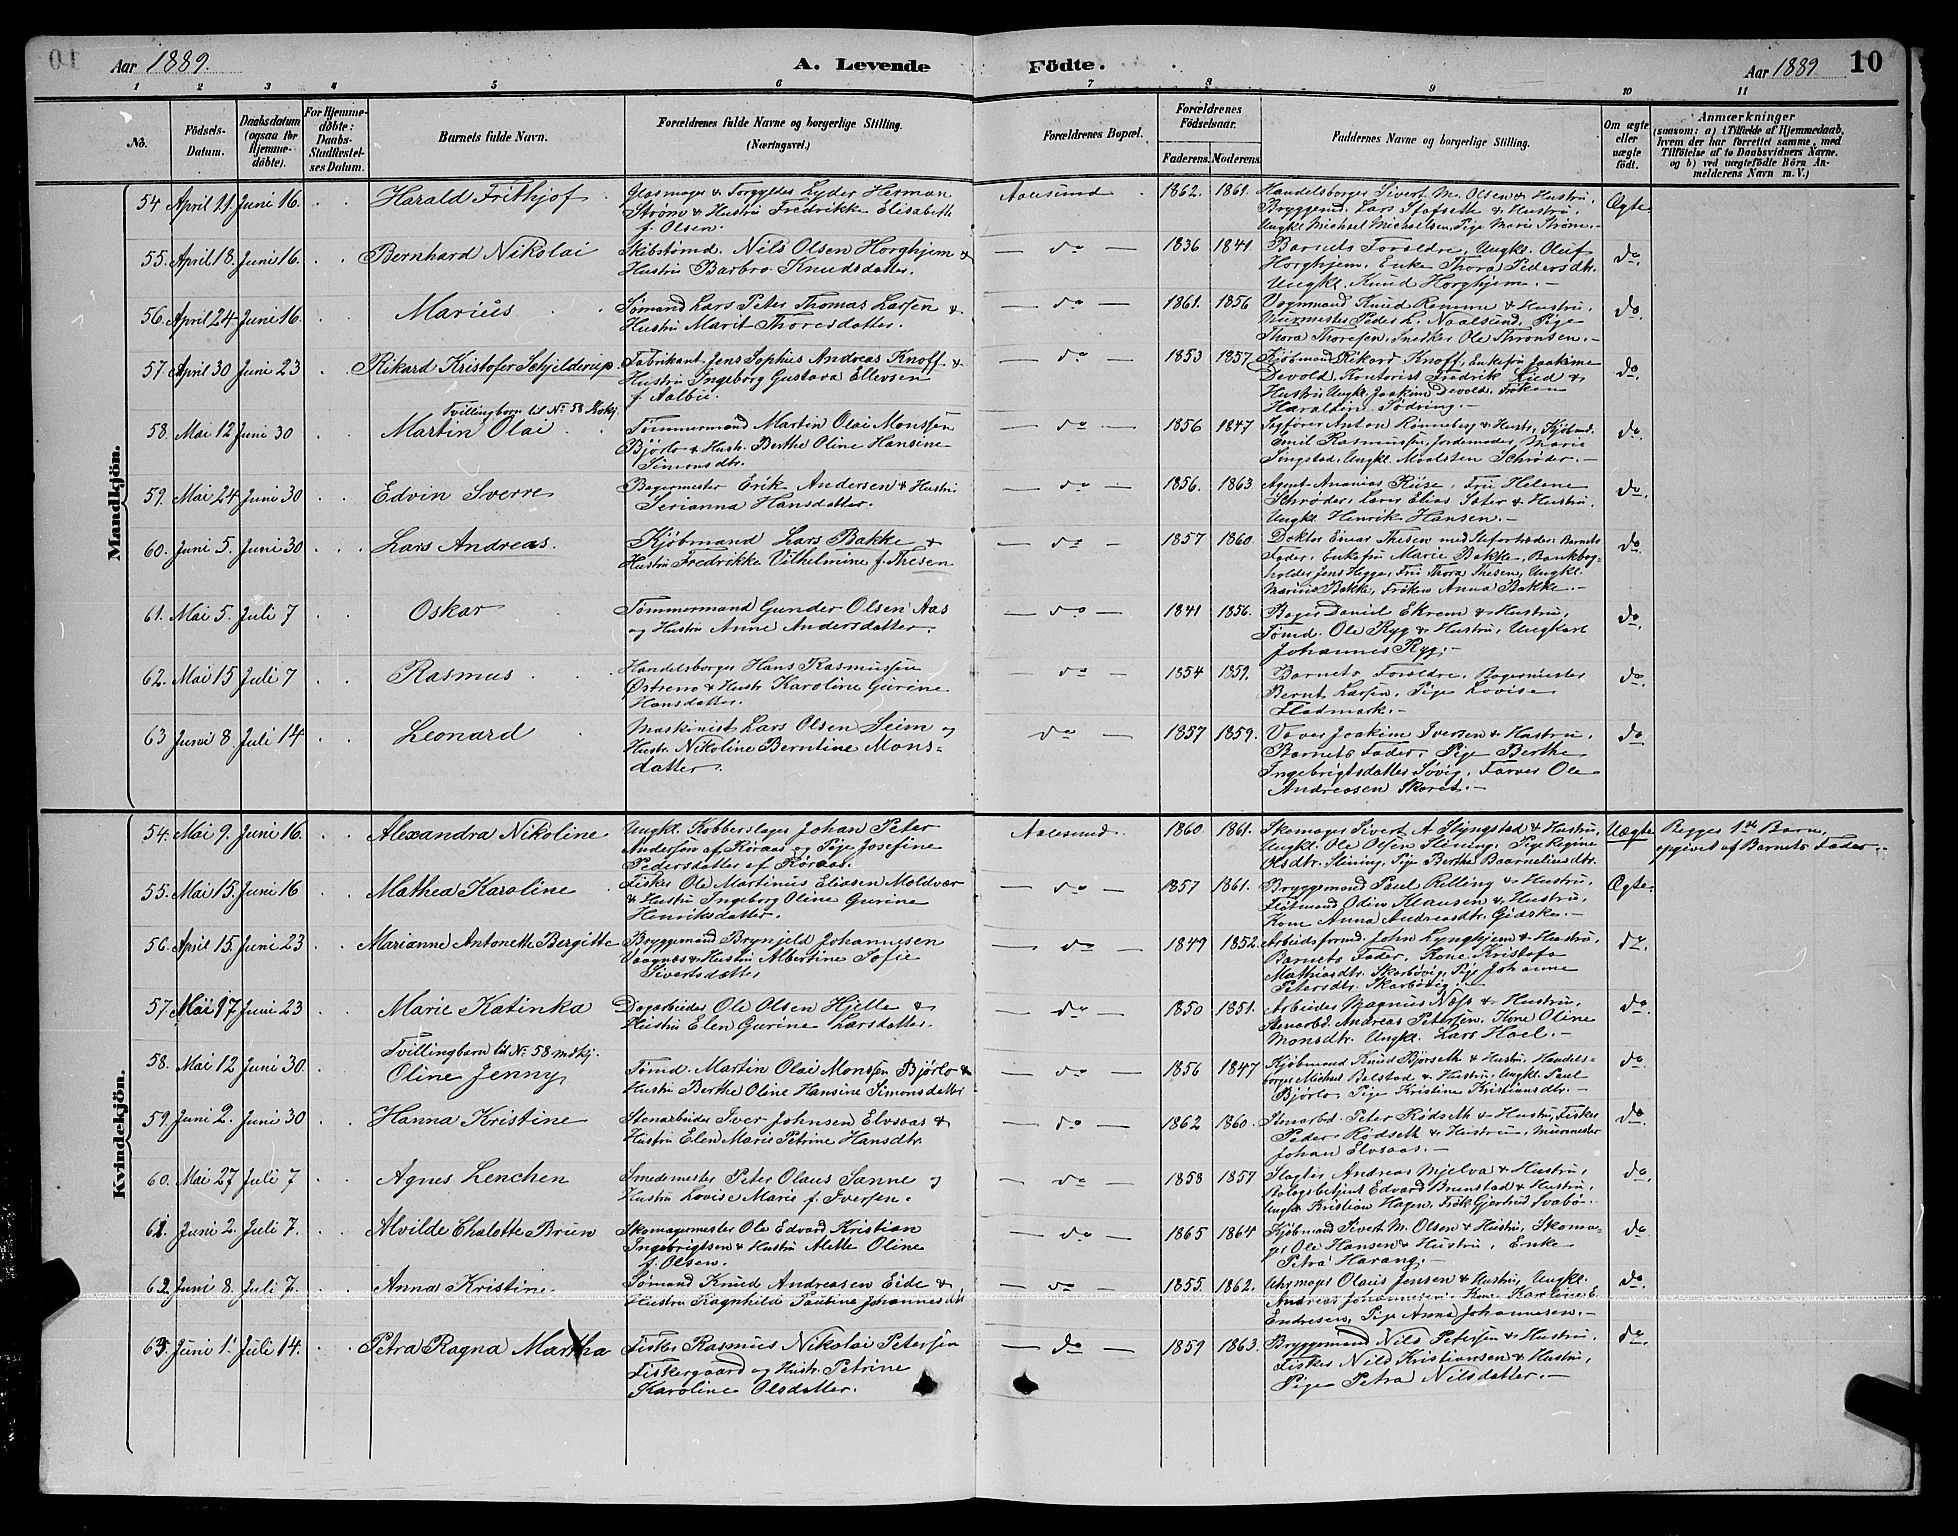 Aar 1889. A. Levende Födte. Aar 1889 10
1 2 3 4 5 6 7 8 9 10 11
No. Födsels-Datum. Daabsdatum (ogsaa for Hjemme-döbte). For Hjemme-döbte: Daabs-Stadfæstel-ses Datum. Barnets fulde Navn. Forældrenes fulde Navne og borgerlige Stilling. (Næringsvei.) Forældrenes Bopæl. Forældrenes Födselsaar. Faderens. Moderens. Faddernes Navne og borgerlige Stilling. Om ægte eller uægte födt. Anmærkninger (saasom: a) i Tilfælde af Hjemmedaab, hvem der har forrettet samme, med Tilföielse af to Daabsvidners Navne, og b) ved uægtefödte Börn An-melderens Navn m. V.)
Mandkjön.
54 April 11. Juni 16. Harald Frithjof Glasmager & Forgylder Lyder Herman Aalesund 1862. 1861. Handelsborger Sivert M. Olsen & Hustru, Ægte
Strøm & Hustru Fredrikke Elisabeth Bryggemd. Lars & Hustru,
f. Olsen. Ungkl. Michael Michaelsen, Pige Marie Strøm.
55. April 18. Juni 16. Bernhard Nikolai Skibstømd. Nils Olsen Horghjem & do 1836 1841 Barnets Forældre, Ungkl. Oluf do.
Hustru Barbro Knudsdatter. Horghjem, Enke Thora Pedersdtr.
Ungkl. Knud Horghjem.
56. April 24 Juni 16. Marius Sømand Lars Peter Thomas Larsen & do 1861. 1856 Vognmand Knud Ramme & Hustru, do.
Hustru Marit Thoresdatter. Murmester Peder L. Naalsund, Pige
Thora Thoresen, Snedker Ole Thronsen.
57. April 30 Juni 23 Rikard Kristofer Schjelderup Fabrikant Jens Sophus Andreas Knoff & do 1853 1857 Kjøbmand Rikard Knoff, Enkefru Joakime do
Hustru Ingeborg Gustava Ellevsen Devold, Kontorist Fredrik &
f. Aalbu. Hustru Ungkl. Joakim Devold, Frøken
Tvillingbarn til No 58 Kvkj. Haraldine Sødring.
58. Mai 12 Juni 30 Martin Olai Tømmermand Martin Olai Monssen do 1856 1847 Sagfører Anton Rønneberg & Hustr. Kjøbmd. do.
Bjørlo & Hustr. Berthe Oline Hansine Emil Rasmussen, Jordemoder Marie
Simonsdtr. Singstad, Ungkl. Schrøder.
59. Mai 24 Juni 30 Edvin Sverre Bagermester Erik Andersen & Hustru do 1856. 1863. Agent Ananias Riise, Fru Helene do.
Serianna Hansdatter. Schrøder, Lærer Elias Sæter & Hustru,
Ungkl. Henrik Hansen.
60. Juni 5. Juni 30 Lars Andreas. Kjøbmand Lars Bakke & do 1857 1860. Doktor Einar Thesen med Stefortræder Barnets do
Hustru Fredrikke Vilhelmine f. Thesen Fader, Enkefru Marie Bakke, Bankbog-
holder Jens Hegge, Fru Thora Thesen, Ungkl.
Marius Bakke, Frøken Anna Bakke.
61. Mai 5. Juli 7 Oskar Tømmermand Gunder Olsen Aas do 1841 1856. Bager Daniel Ekrem & Hustru, do
og Hustru Anne Andersdatter. Tømd. Ole Ryg & Hustru, Ungkarl
Johannes Ryg.
62. Mai 15 Juli 7 Rasmus Handelsborger Hans Rasmussen do 1854 1859. Barnets Forældre, Bagermester do.
Østrem & Hustr Karoline Gurine Bernt Larsen, Pige Lovise
Hansdatter. Fladmark.
63 Juni 8 Juli 14 Leonard Maskinist Lars Olsen Seim og do 1857 1859. Væver Joakim Iversen & Hustru, do
Hustr. Nikoline Berntine Mons- Barnets Fader, Pige Berthe
datter. Ingebrigtsdatter Søvig, Farver Ole
Andreassen Skaret.
Kvindekjön.
54. Mai 9. Juni 16. Alexandra Nikoline Ungkl. Kobberslager Johan Peter Aalesund. 1860. 1861. Skomager Sivert A. Slyngstad & Hustru, Uægte Begges 1ste Barn,
Andersen af Røraas og Pige Josefine Ungkl. Ole Olsen Slening, Pige Regine opgivet af Barnets Fader.
Pedersdatter af Røraas. Olsdtr. Slening, Pige Berthe
55. Mai 15. Juni 16 Mathea Karoline Fisker Ole Martinus Eliasen Moldvær do 1857 1861. Bryggemand Paul Relling & Hustru, Ægte
& Hustru Ingeborg Oline Gurine Fløtmand Odin Klausen & Hustru,
Henriksdatter. Kone Anna Andreasdtr. Gidske.
56. April 15. Juni 23 Marianne Antonette Bergitte Bryggemand Brynjeld Johannesen do 1849 1852. Arbeidsformd. John Lynghjem & Hustru, do.
Vaagnæs & Hustru Albertine Sofie Barnets Fader, Kone Kristofa
Sivertsdatter Mathiasdtr. Skarbøvig, Pige Johanne
Petersdtr. Skarbøvig.
57. Mai 17 Juni 23 Marie Katinka Dagarbeider Ole Olsen Hjelle & do 1850 1851. Arbeider Magnus Næss & Hustru, do
Hustru Elen Gurine Larsdatter. Stenarbd. Andreas Petersen, Kone Oline
Tvillingbarn til No 58 mdkj. Monsdtr. Ungkl. Lars Hoel.
58. Mai 12 Juni 30. Oline Jenny Tømd. Martin Olai Monssen Bjørlo & do 1856 1847 Kjøbmand Knud Bjørseth & Hustru, Handels- do
Hustru Berthe Oline Hansine Simonsdatter borger Michael Balstad & Hustru, Ungkl. Paul
Bjørlo, Pige Kristine Kristiansdtr.
59. Juni 2. Juni 30 Hanna Kristine Stenarbeider Iver Johnsen Elvsaas & do 1862 1860. Stenarbd. Peter Rødseth & Hustru, Fisker do
Hustru Elen Marie Petrine Hansdtr. Peder Rødseth & Hustru, Murmester
Johan Elvsaas.
60. Mai 27 Juli 7 Agnes Lenchen Smedemester Peter Olaus Sanne og do 1858 1857 Slagter Andreas Mjelva & Hustru, do
Hustru Lovise Marie f. Iversen. Edvard Brunstad & Hustru,
Ungkl. Kristian Hagen, Frøk. Gjertrud Svabø.
61. Juni 2. Juli 7. Alvilde Chalotte Brun Skomagermester Ole Edvard Kristian do 1865 1864 Kjøbmand Sivert M. Olsen & Hustru, Skoma- do
Ingebrigtsen & Hustru Alette Oline ger Ole Hansen & Hustru, Enke
f. Olsen. Petra Harang.
62. Juni 8. Juli 7. Anna Kristine Sømand Knud Andreasen Eide & do 1855. 1862. Uhrmager Olaus Jensen & Hustru, Ungkl. do.
Hustru Ragnhild Pauline Johannesdtr Andreas Johannesen, Kone Karoline E.
Endresen, Pige Anna Johannesen.
63. Juni 1. Juli 14. Petra Ragna Martha Fisker Rasmus Nikolai Petersen do 1859 1863. Bryggemand Nils Petersen & Hustru, do.
Fiskergaard og Hustr. Petrine Fisker Nils Kristiansen & Hustru,
Karoline Olsdatter. Pige Petra Nilsdatter.